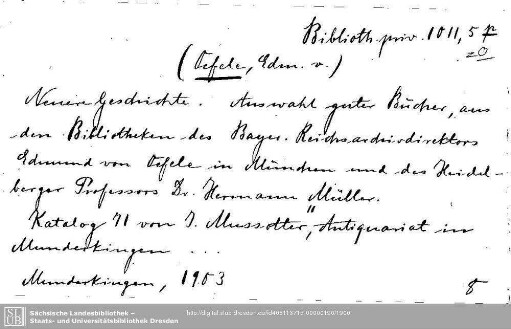 Biblioth. priv. 1011, 5 p
20
(Oefele, Edm. v.)
Neuere Geschichte. Auswahl guter Bücher, aus
den Bibliotheken des Bayer. Reichsarchivdirektors
Edmund von Oefele in München und des Heidel-
berger Professors Dr. Hermann Müller.
Katalog 71 von J. Mussotter, Antiquariat in
Munderkingen ...
Munderkingen, 1903
8
SLUB
Sächsische Landesbibliothek –
Staats- und Universitätsbibliothek Dresden